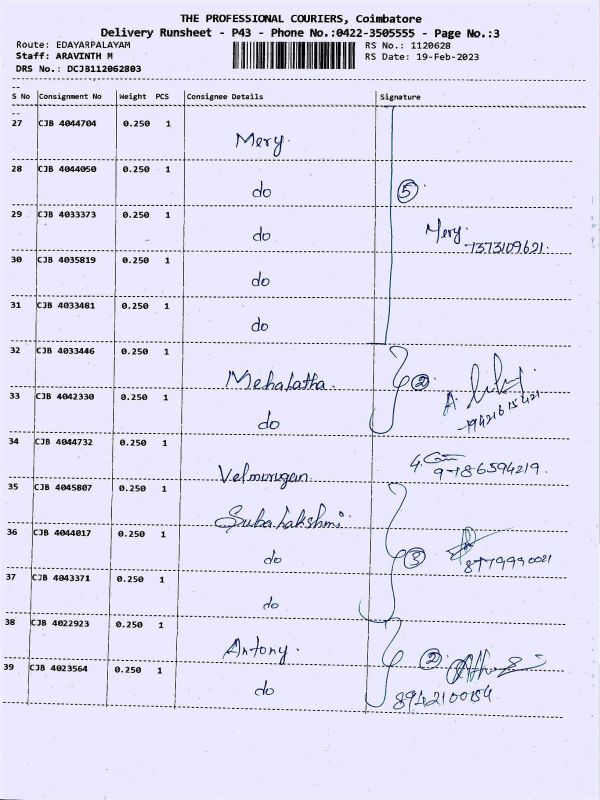 THE PROFESSIONAL COURIERS, Coimbatore
Delivery Runsheet - P43 - Phone No.:0422-3505555 - Page No.:3
Route: EDAYARPALAYAM RS No.: 1120628
Staff: ARAVINTH M RS Date: 19-Feb-2023
DRS No.: DCJB112062803
S No Consignment No Weight PCS Consignee Details Signature
27 CJB 4044704 0.250 1 Mery.
28 CJB 4044050 0.250 1 do 5
29 CJB 4033373 0.250 1 do Mery.
7373109621.
30 CJB 4035819 0.250 1 do
31 CJB 4033481 0.250 1 do
32 CJB 4033446 0.250 1 Mehalatha. 2
33 CJB 4042330 0.250 1 do
34 CJB 4044732 0.250 1 Velmurugan 9786594219.
35 CJB 4045807 0.250 1 Subahakshmi.
36 CJB 4044017 0.250 1 do 3 8779990021
37 CJB 4043371 0.250 1 do
38 CJB 4022923 0.250 1 Antony. 2
39 CJB 4023564 0.250 1 do 8942100154